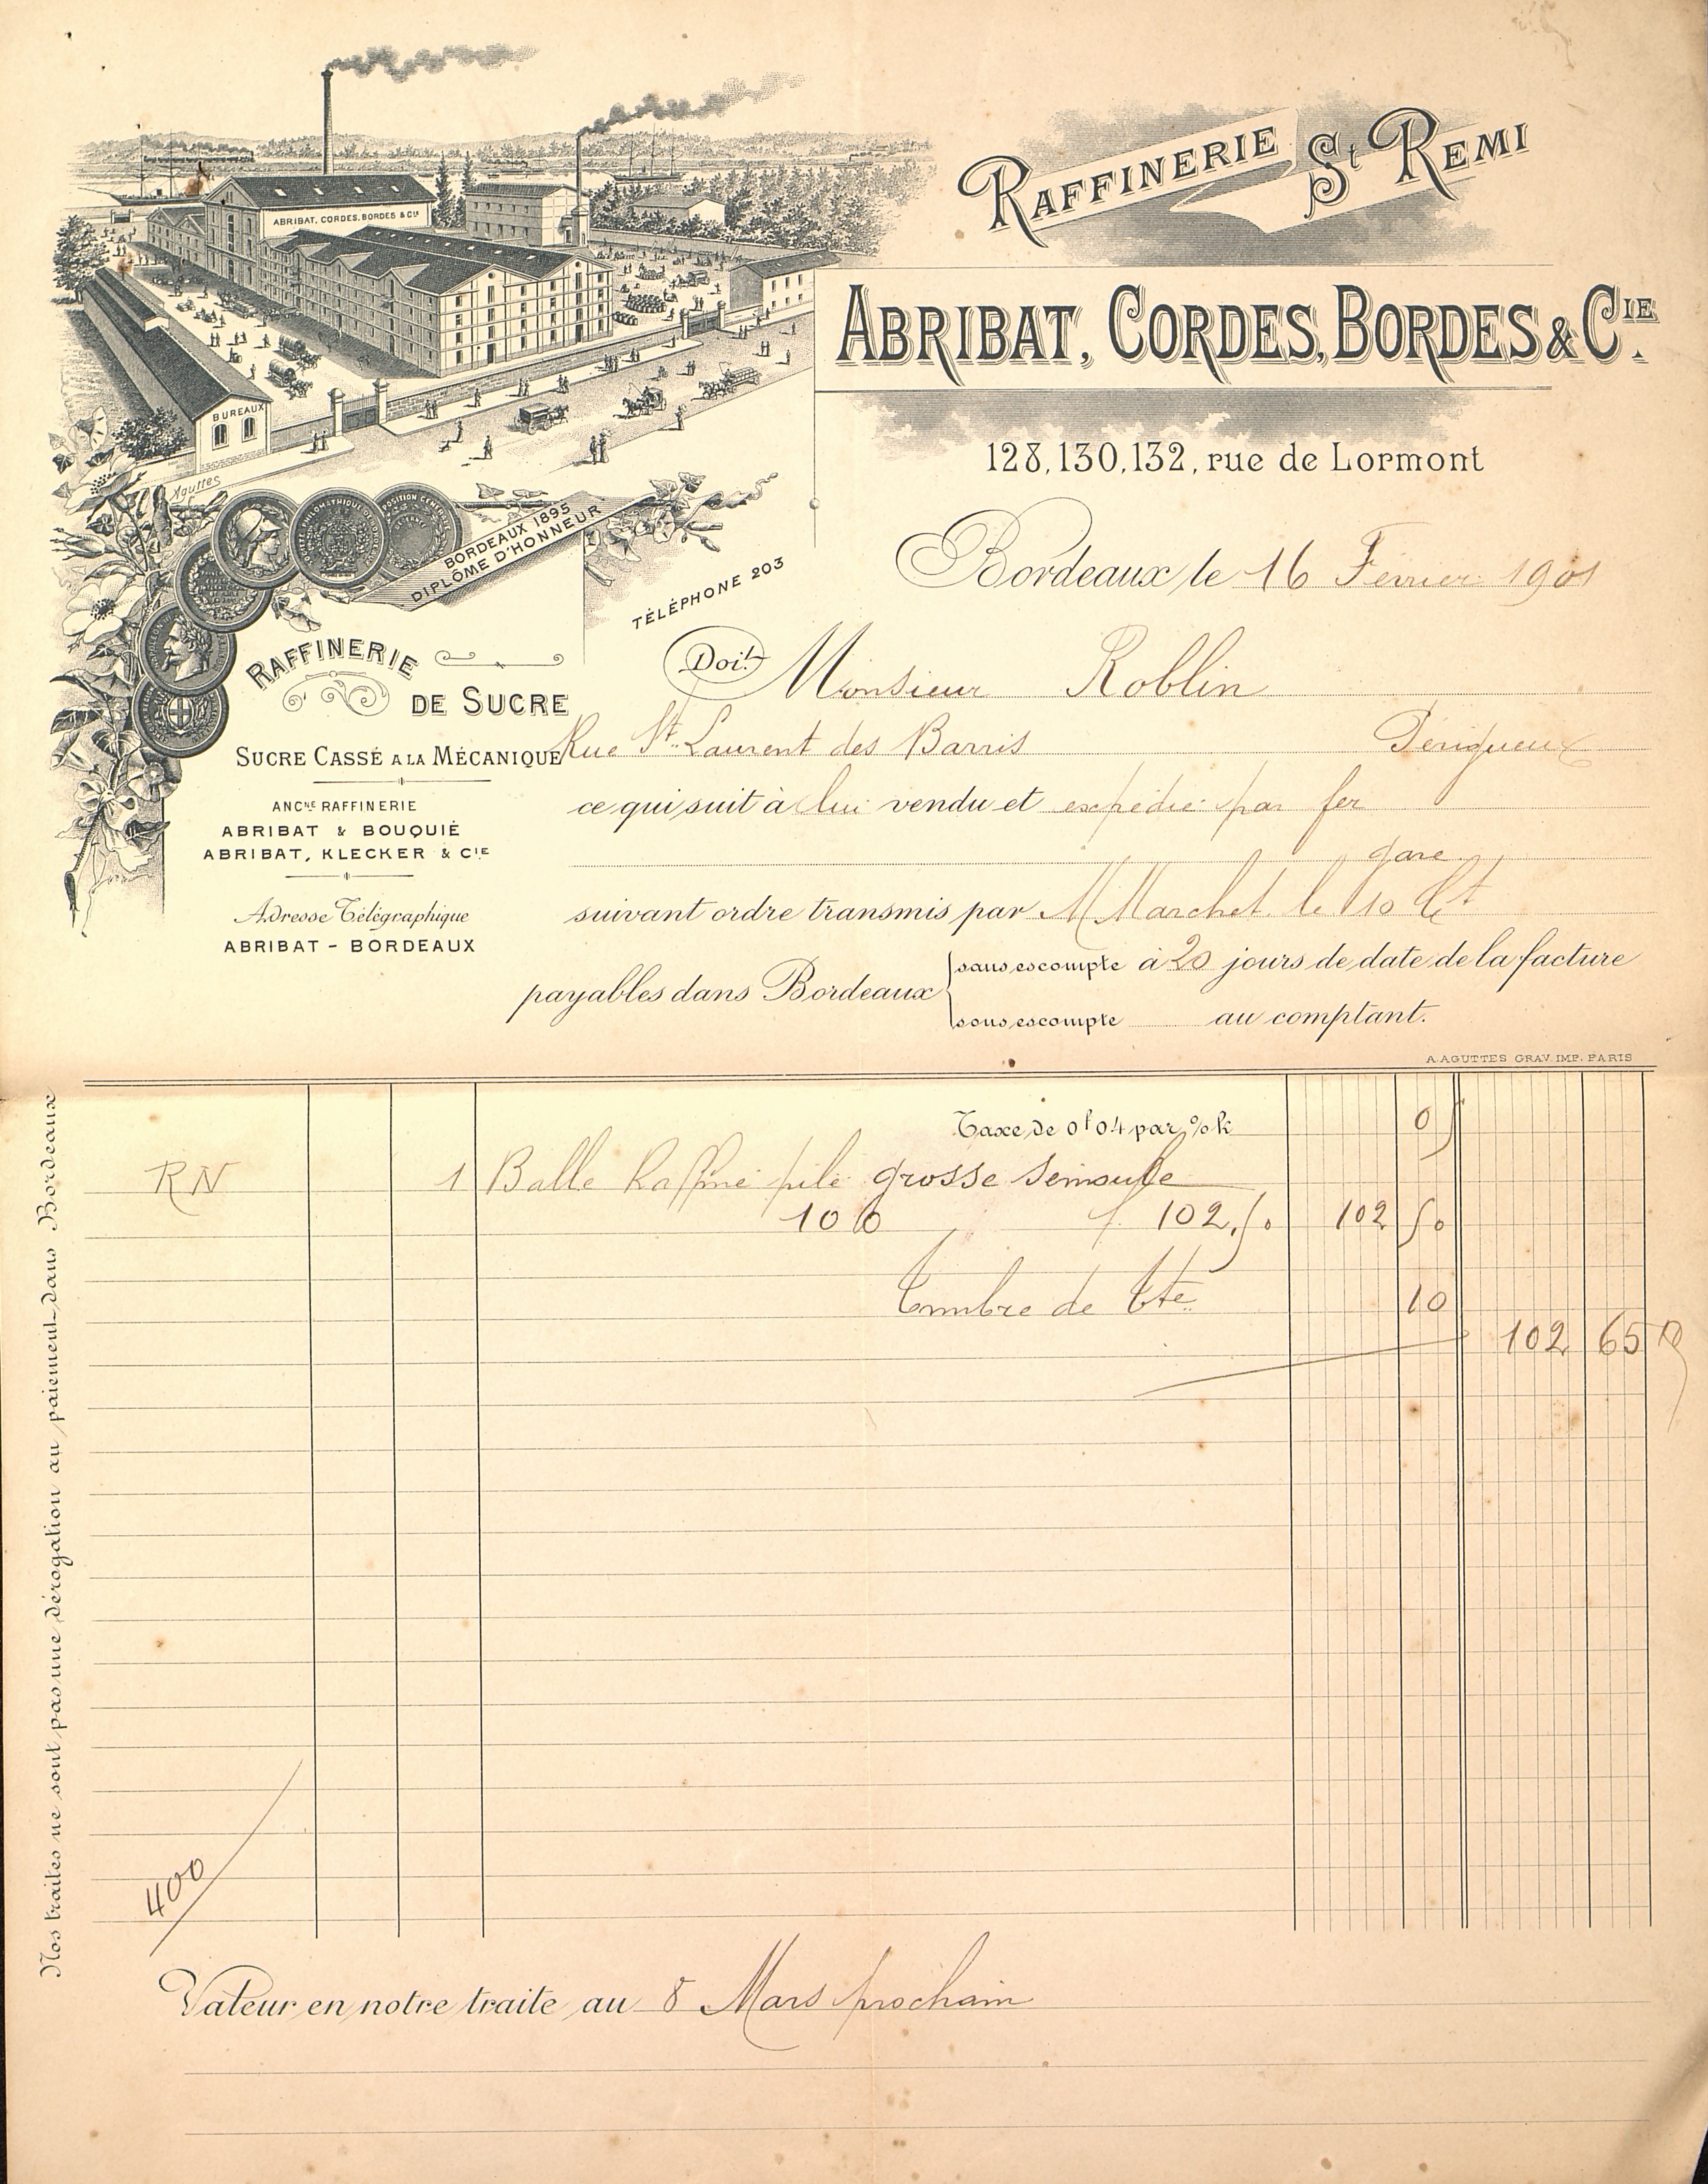 RAFFINERIE St REMI
ABRIBAT, CORDES, BORDES & CIE
ABRIBAT, CORDES, BORDES & CIE.
128, 130, 132, rue de Lormont
BUREAUX
Aguttes
BORDEAUX 1895
DIPLÔME D'HONNEUR
TÉLÉPHONE 203
Bordeaux le 16 Février 1901
RAFFINERIE
DE SUCRE
Doit Monsieur Roblin
SUCRE CASSÉ A LA MÉCANIQUE
Rue St Laurent des Barris Périgueux
ANCNE RAFFINERIE
ABRIBAT & BOUQUIÉ
ABRIBAT, KLECKER & CIE
ce qui suit à lui vendu et expédié par fer
gare
Adresse Télégraphique
ABRIBAT - BORDEAUX
suivant ordre transmis par M Marchet le 10 Ct
payables dans Bordeaux
sans escompte à 20 jours de date de la facture
sous escompte au comptant.
A. AGUTTES GRAV. IMP. PARIS
Taxe de 0f04 par % k 05
RN 1 Balle Raffiné pilé grosse Semoule
100 102.50 102 50
Timbre de Qte 10
102 65
400
Nos traites ne sont pas une dérogation au paiement dans Bordeaux
Valeur en notre traite au 8 Mars prochain